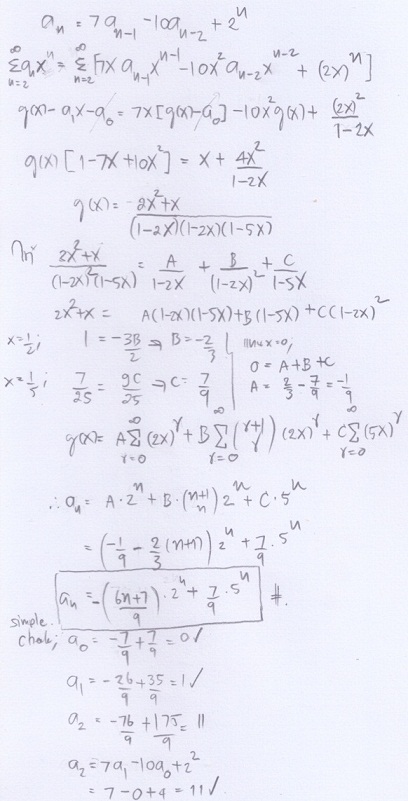 aₙ = 7aₙ₋₁ - 10aₙ₋₂ + 2ⁿ
∞Σn=2 aₙxⁿ = ∞Σn=2 [7x aₙ₋₁xⁿ⁻¹ - 10x²aₙ₋₂xⁿ⁻² + (2x)ⁿ]
g(x) - a₁x - a₀ = 7x[g(x) - a₀] - 10x²g(x) + (2x)²/(1-2x)
g(x)[1-7x+10x²] = x + 4x²/(1-2x)
g(x) = (2x²+x)/((1-2x)(1-2x)(1-5x))
จาก (2x²+x)/((1-2x)²(1-5x)) = A/(1-2x) + B/(1-2x)² + C/(1-5x)
2x²+x = A(1-2x)(1-5x) + B(1-5x) + C(1-2x)²
x=1/2; 1 = -3B/2 ⇒ B = -2/3 | แทน x=0;
0 = A+B+C
x=1/5; 7/25 = 9C/25 ⇒ C = 7/9 | A = 2/3 - 7/9 = -1/9
g(x) = A ∞Σr=0 (2x)ʳ + B ∞Σr=0 (r+1 r)(2x)ʳ + C ∞Σr=0 (5x)ʳ
∴ aₙ = A·2ⁿ + B·(n+1 n)2ⁿ + C·5ⁿ
= (-1/9 - 2/3(n+1))2ⁿ + 7/9·5ⁿ
aₙ = -((6n+7)/9)·2ⁿ + 7/9·5ⁿ #.
simple
check; a₀ = -7/9 + 7/9 = 0 ✓
a₁ = -26/9 + 35/9 = 1 ✓
a₂ = -76/9 + 175/9 = 11
a₂ = 7a₁ - 10a₀ + 2²
= 7 - 0 + 4 = 11 ✓